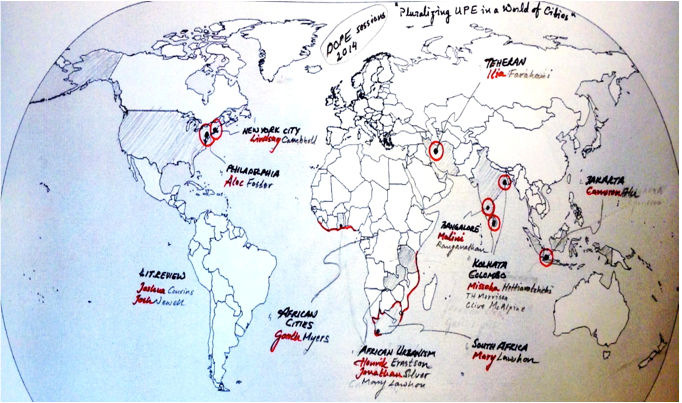 DOPE sessions
2014
"Pluralizing UPE in a World of Cities"
TEHERAN
Ilia Farahani
NEW YORK CITY
Lindsay Campbell
PHILADELPHIA
Alec Foster
JAKARTA
Cameron
BANGALORE
Malini
Ranganathan
KOLKATA
COLOMBO
Missaka Hettiarachchi
TH Morrison
Clive McAlpine
LIT.REVIEW
Joshua Cousins
Josh Newell
AFRICAN
CITIES
Garth Myers
AFRICAN URBANISM
Henrik Ernstson
Jonathan Silver
Mary Lawhon
SOUTH AFRICA
Mary Lawhon